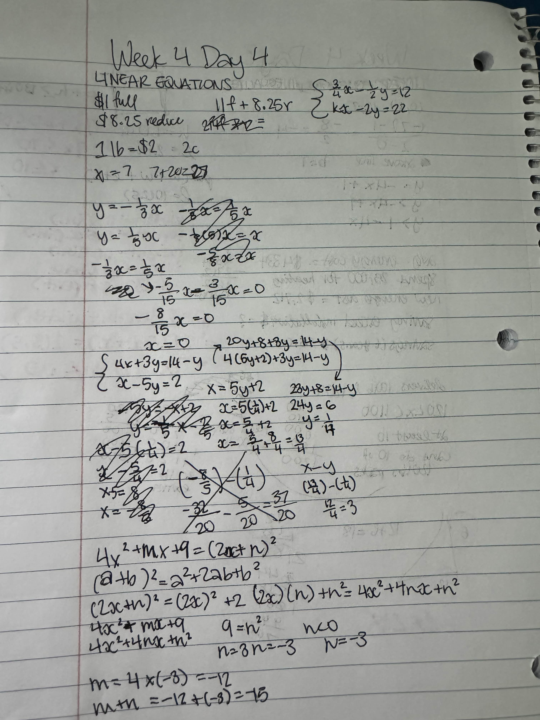 Week 4 Day 4
LINEAR EQUATIONS
$11 full 11f + 8.25r
$8.25 reduce
{ 3/4x - 1/2y = 12
kx - 2y = 22
1 lb = $2 2c
x = 7 7+20=27
y = -1/3x
y = 1/5x
-1/3x = 1/5x
-5/15x - 3/15x = 0
-8/15x = 0
x = 0
{ 4x + 3y = 14 - y
x - 5y = 2
20y + 8 + 3y = 14 - y
4(5y+2) + 3y = 14 - y
x = 5y + 2
23y + 8 = 14 - y
x = 5(1/4) + 2
24y = 6
x = 5/4 + 2
y = 1/4
x = 5/4 + 8/4 = 13/4
x - 5(1/4) = 2
x - 5/4 = 2
(-8/5) - (1/4)
-32/20 - 5/20 = 37/20
x - y
(13/4) - (1/4)
12/4 = 3
4x² + mx + 9 = (2x + n)²
(a+b)² = a² + 2ab + b²
(2x+n)² = (2x)² + 2 (2x)(n) + n² = 4x² + 4nx + n²
4x² + mx + 9 9 = n² n<0
4x² + 4nx + n² n = 3 n = -3 n = -3
m = 4 x (-3) = -12
m + n = -12 + (-3) = -15